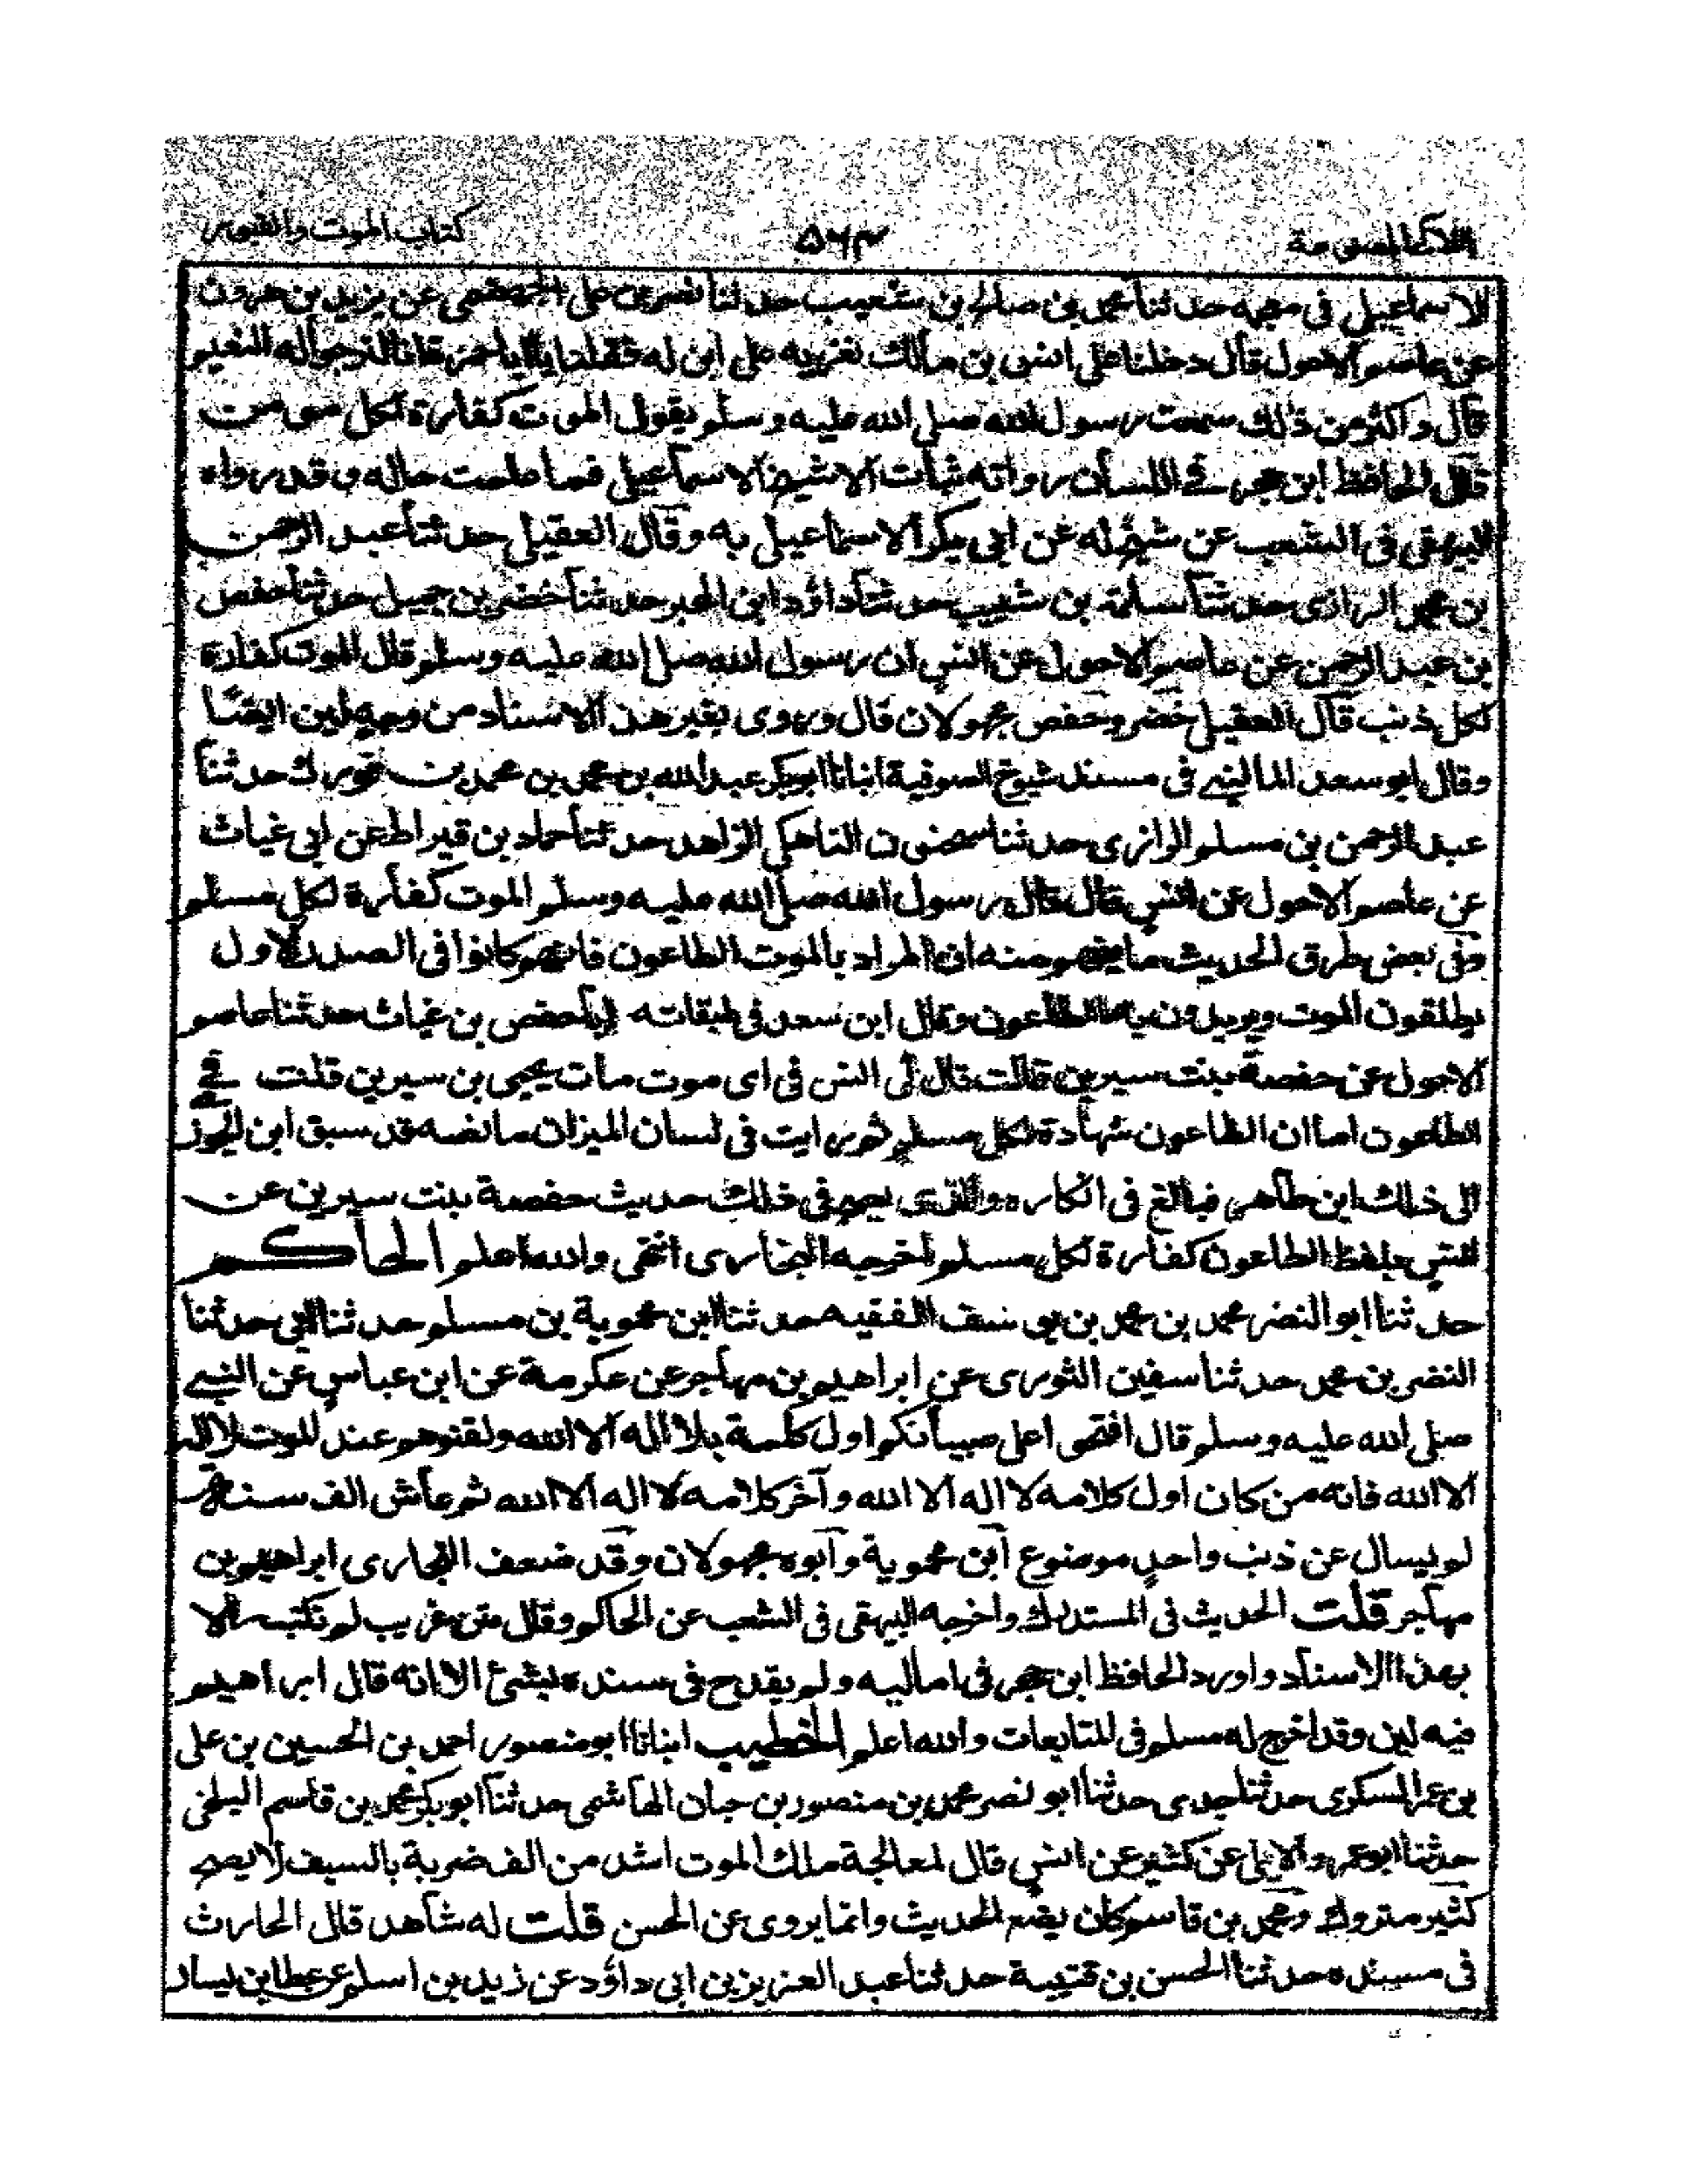 اللآلى المصنوعة ۵۶۳ كتاب الموت والقبور
الاسماعيلى فى معجمه حدثنا محمد بن صالح بن شعيب حدثنا نصر بن على الجهضمى عن يزيد بن هرون
عن عاصم الاحول قال دخلنا على انس بن مالك نعزيه على ابن له فقلنا يا ابا حمزة انا لنرجو له الخير
قال واكثر من ذلك سمعت رسول الله صلى الله عليه وسلم يقول الموت كفارة لكل مومن
قال الحافظ ابن حجر فى اللسان رواته ثبات الا شيخ الاسماعيلى فما علمت حاله وقد رواه
البيهقى فى الشعب عن شيخ له عن ابى بكر الاسماعيلى به وقال العقيلى حدثنا عبد الرحمن
بن محمد الرازى حدثنا سلمة بن شبيب حدثنا داؤد ابن المحبر حدثنا خضر بن جميل حدثنا حفص
بن عبد الرحمن عن عاصم الاحول عن انس ان رسول الله صلى الله عليه وسلم قال الموت كفارة
لكل ذنب قال العقيلى خضر وحفص مجهولان قال وروى بغير هذا الاسناد من وجه لين ايضا
وقال ابو سعد المالينى فى مسند شيوخ الصوفية انبانا ابوبكر عبد الله بن محمد بن محمد بن فورك حدثنا
عبد الرحمن بن مسلم الرازى حدثنا الزاهد حدثنا حماد بن قيراط عن ابى غياث
عن عاصم الاحول عن انس قال قال رسول الله صلى الله عليه وسلم الموت كفارة لكل مسلم
وفى بعض طرق الحديث ما يفهم منه ان المراد بالموت الطاعون فانهم كانوا فى الصدر الاول
يطلقون الموت ويريدون به الطاعون وقال ابن سعد فى طبقاته حفص بن غياث حدثنا عاصم
الاحول عن حفصة بنت سيرين قالت قال لى انس فى اى موت مات يحيى بن سيرين قلت فى
الطاعون اما ان الطاعون شهادة لكل مسلم ثم رايت فى لسان الميزان ما نصه قد سبق ابن الجوز
الى ذلك ابن طاهر فبالغ فى انكاره والذى يصح فى ذلك حديث حفصة بنت سيرين عن
انس بلفظ الطاعون كفارة لكل مسلم اخرجه البخارى انتهى والله اعلم الحاكم
حدثنا ابو النضر محمد بن محمد بن يوسف الفقيه حدثنا ابن محموية بن مسلم حدثنا ابى حدثنا
النضر بن محمد حدثنا سفين الثورى عن ابراهيم بن مهاجر عن عكرمة عن ابن عباس عن النبى
صلى الله عليه وسلم قال افتحوا على صبيانكم اول كلمة بلا اله الا الله ولقنوهم عند الموت لا اله
الا الله فانه من كان اول كلامه لا اله الا الله وآخر كلامه لا اله الا الله ثم عاش الف سنة
لم يسال عن ذنب واحد موضوع ابن محموية وابوه مجهولان وقد ضعف البخارى ابراهيم بن
مهاجر قلت الحديث فى المستدرك واخرجه البيهقى فى الشعب عن الحاكم وقال متن غريب لم نكتبه الا
بهذا الاسناد واورد الحافظ ابن حجر فى اماليه ولم يقدح فى سنده بشئ الا انه قال ابراهيم
فيه لين وقد اخرج له مسلم فى المتابعات والله اعلم الخطيب انبانا ابو منصور احمد بن الحسين بن على
بن عمر السكرى حدثنا جدى حدثنا ابو نصر محمد بن منصور بن حبان الهاشمى حدثنا ابوبكر محمد بن قاسم البلخى
حدثنا ابو عمرو الابلى عن كثير عن انس قال لمعالجة ملك الموت اشد من الف ضربة بالسيف لا يصح
كثير متروك ومحمد بن قاسم كان يضع الحديث وانما يروى عن الحسن قلت له شاهد قال الحارث
فى مسنده حدثنا الحسن بن قتيبة حدثنا عبد العزيز بن ابى داؤد عن زيد بن اسلم عن عطا بن يسار